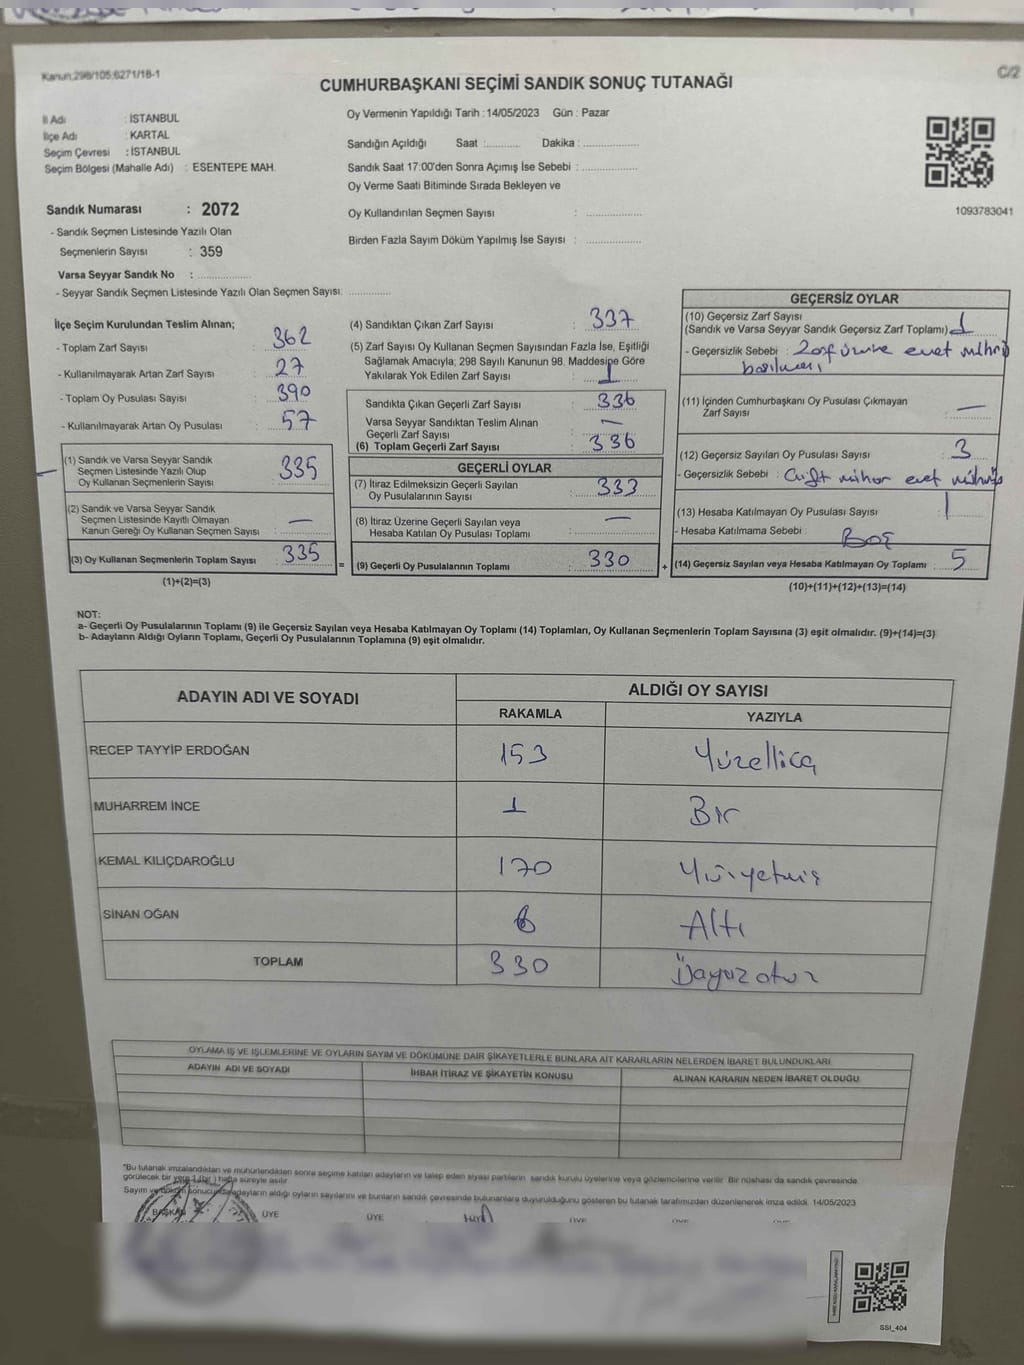 Kanun;298/105;6271/18-1
C/2
CUMHURBAŞKANI SEÇİMİ SANDIK SONUÇ TUTANAĞI
İl Adı : İSTANBUL
İlçe Adı : KARTAL
Seçim Çevresi : İSTANBUL
Seçim Bölgesi (Mahalle Adı) : ESENTEPE MAH.
Sandık Numarası : 2072
- Sandık Seçmen Listesinde Yazılı Olan
Seçmenlerin Sayısı : 359
Varsa Seyyar Sandık No : ..............
- Seyyar Sandık Seçmen Listesinde Yazılı Olan Seçmen Sayısı: ............
Oy Vermenin Yapıldığı Tarih : 14/05/2023 Gün : Pazar
Sandığın Açıldığı Saat :.......... Dakika : ................
Sandık Saat 17:00'den Sonra Açımış İse Sebebi : ................
Oy Verme Saati Bitiminde Sırada Bekleyen ve
Oy Kullandırılan Seçmen Sayısı : ................
Birden Fazla Sayım Döküm Yapılmış İse Sayısı : ................
1093783041
İlçe Seçim Kurulundan Teslim Alınan;
- Toplam Zarf Sayısı : 362
- Kullanılmayarak Artan Zarf Sayısı : 27
- Toplam Oy Pusulası Sayısı : 390
- Kullanılmayarak Artan Oy Pusulası : 57
(1) Sandık ve Varsa Seyyar Sandık
Seçmen Listesinde Yazılı Olup
Oy Kullanan Seçmenlerin Sayısı : 335
(2) Sandık ve Varsa Seyyar Sandık
Seçmen Listesinde Kayıtlı Olmayan
Kanun Gereği Oy Kullanan Seçmen Sayısı : —
(3) Oy Kullanan Seçmenlerin Toplam Sayısı : 335
(1)+(2)=(3)
(4) Sandıktan Çıkan Zarf Sayısı : 337
(5) Zarf Sayısı Oy Kullanan Seçmen Sayısından Fazla İse, Eşitliği
Sağlamak Amacıyla; 298 Sayılı Kanunun 98. Maddesine Göre
Yakılarak Yok Edilen Zarf Sayısı : 1
Sandıkta Çıkan Geçerli Zarf Sayısı : 336
Varsa Seyyar Sandıktan Teslim Alınan
Geçerli Zarf Sayısı : —
(6) Toplam Geçerli Zarf Sayısı : 336
GEÇERLİ OYLAR
(7) İtiraz Edilmeksizin Geçerli Sayılan
Oy Pusulalarının Sayısı : 333
(8) İtiraz Üzerine Geçerli Sayılan veya
Hesaba Katılan Oy Pusulası Toplamı : —
= (9) Geçerli Oy Pusulalarının Toplamı : 330
GEÇERSİZ OYLAR
(10) Geçersiz Zarf Sayısı
(Sandık ve Varsa Seyyar Sandık Geçersiz Zarf Toplamı) 1
- Geçersizlik Sebebi : Zarf üzerine evet mührü
basılması
(11) İçinden Cumhurbaşkanı Oy Pusulası Çıkmayan
Zarf Sayısı : —
(12) Geçersiz Sayılan Oy Pusulası Sayısı : 3
- Geçersizlik Sebebi : Çift mühür evet mührü
(13) Hesaba Katılmayan Oy Pusulası Sayısı : 1
- Hesaba Katılmama Sebebi : Boş
+ (14) Geçersiz Sayılan veya Hesaba Katılmayan Oy Toplamı : 5
(10)+(11)+(12)+(13)=(14)
NOT:
a- Geçerli Oy Pusulalarının Toplamı (9) ile Geçersiz Sayılan veya Hesaba Katılmayan Oy Toplamı (14) Toplamları, Oy Kullanan Seçmenlerin Toplam Sayısına (3) eşit olmalıdır. (9)+(14)=(3)
b- Adayların Aldığı Oyların Toplamı, Geçerli Oy Pusulalarının Toplamına (9) eşit olmalıdır.
ADAYIN ADI VE SOYADI
ALDIĞI OY SAYISI
RAKAMLA YAZIYLA
RECEP TAYYİP ERDOĞAN 153 Yüzelliüç
MUHARREM İNCE 1 Bir
KEMAL KILIÇDAROĞLU 170 Yüzyetmiş
SİNAN OĞAN 6 Altı
TOPLAM 330 Üçyüzotuz
OYLAMA İŞ VE İŞLEMLERİNE VE OYLARIN SAYIM VE DÖKÜMÜNE DAİR ŞİKAYETLERLE BUNLARA AİT KARARLARIN NELERDEN İBARET BULUNDUKLARI
ADAYIN ADI VE SOYADI İHBAR İTİRAZ VE ŞİKAYETİN KONUSU ALINAN KARARIN NEDEN İBARET OLDUĞU
*Bu tutanak imzalandıktan ve mühürlendikten sonra seçime katılan adayların ve talep eden siyasi partilerin sandık kurulu üyelerine veya gözlemcilerine verilir. Bir nüshası da sandık çevresinde
görülecek bir yere 1 (bir) hafta süreyle asılır.
Sayım ve döküm sonucunda adayların aldığı oyların sayılarını ve bunların sandık çevresinde bulunanlara duyurulduğunu gösteren bu tutanak tarafımızdan düzenlenerek imza edildi. 14/05/2023
BAŞKAN ÜYE ÜYE ÜYE ÜYE ÜYE
SSI_404